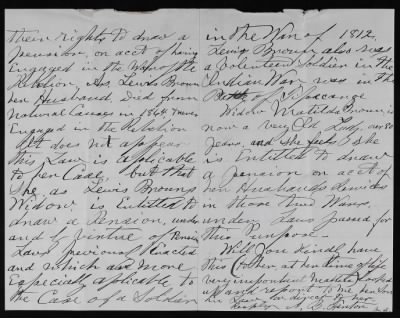 their rights to draw a
Pension, on acct of having
Engaged in the War of the
Rebelion. As Lewis Brown
her Husband Died from
Natural Causes in 1864 & never
Engaged in the Rebelion
It does not appear
this Law is applicable
to her Case, but that
She, as Lewis Browns
Widow is Entitled to
draw a Pension, under
and by Virtue of Pension
Laws previously Enacted
and which are more
Especially applicable to
the Case of a Soldier
in the War of 1812.
Lewis Brown also was
a Volunteer Soldier in the
Indian War was in the
Battle of
Widow Matilda Brown is
now a very Old Lady, over 80
Years, and she feels She
is Entitled to draw
a pension on acct of
her Husbands Services
in those Two Wars,
under Laws passed for
this Purpose-
Will You Kindly have
this (to her at her time of life
very important matter) looked
up and report to me, her Son
in Law, or direct to her
A. B.